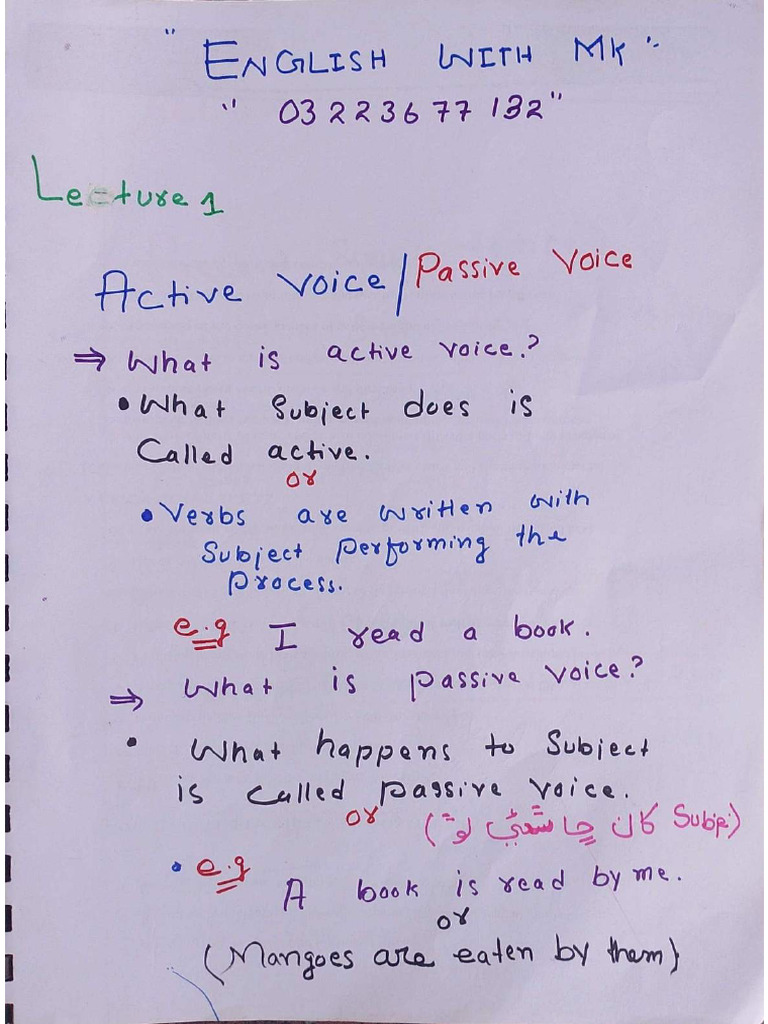 " ENGLISH WITH MK "
" 03 22 36 77 132 "
Lecture 1
Active Voice / Passive Voice
⇒ What is active voice.?
• What Subject does is
Called active.
or
• Verbs are written with
Subject performing the
process.
e.g I read a book.
⇒ What is passive voice?
• What happens to Subject
is called passive voice.
or
Subje
• e.g A book is read by me.
or
(Mangoes are eaten by them)